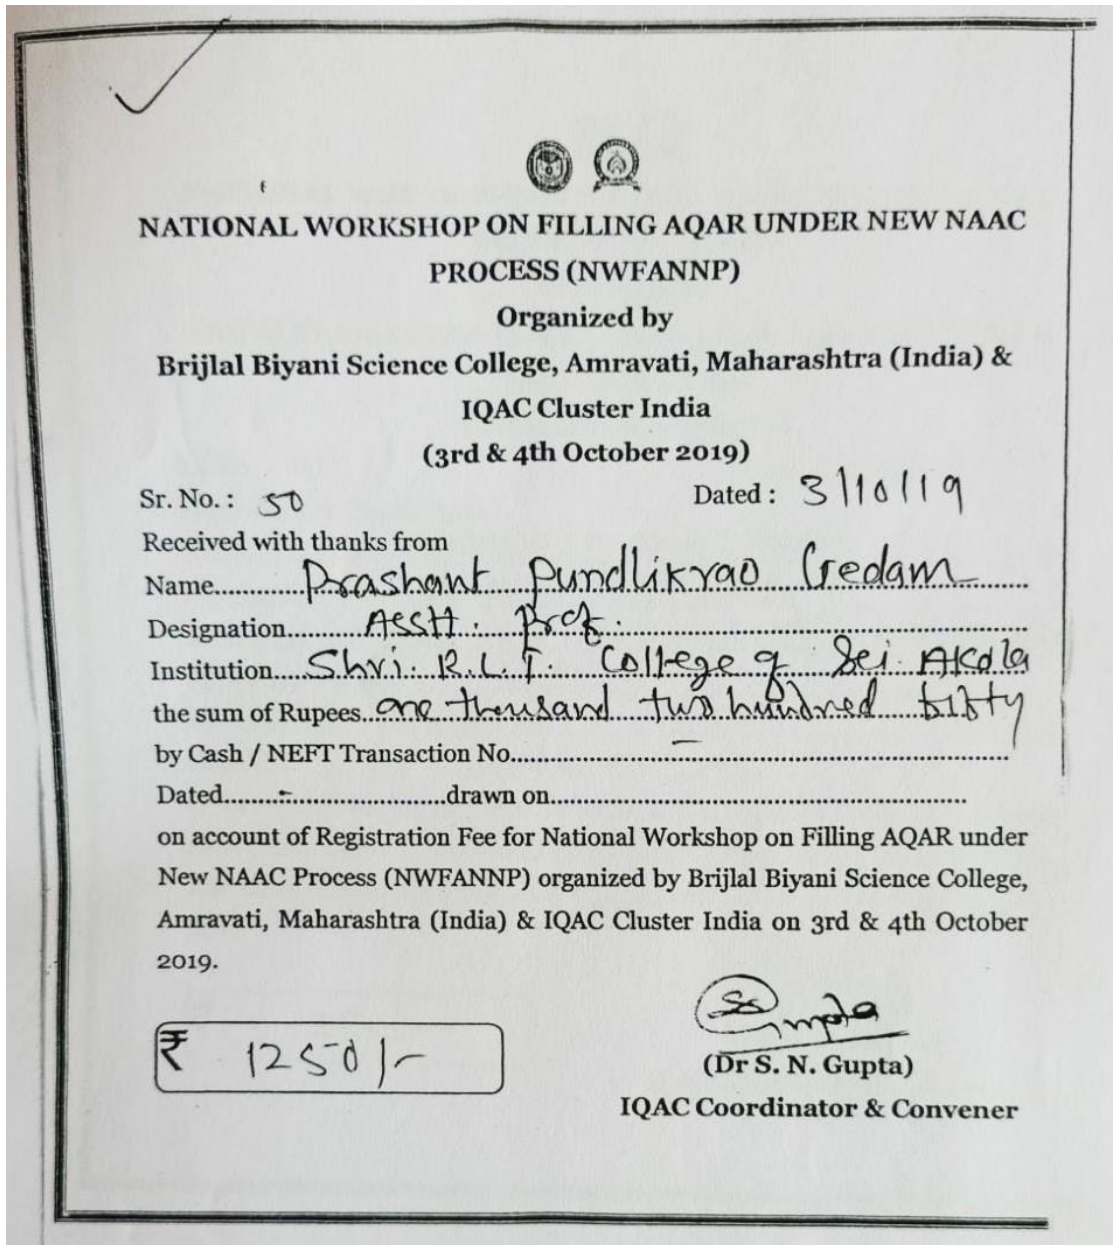 NATIONAL WORKSHOP ON FILLING AQAR UNDER NEW NAAC
PROCESS (NWFANNP)
Organized by
Brijlal Biyani Science College, Amravati, Maharashtra (India) &
IQAC Cluster India
(3rd & 4th October 2019)
Sr. No. : 50 Dated : 3/10/19
Received with thanks from
Name.......... Prashant Pundlikrao Gedam
Designation.......... Asstt. Prof.
Institution..... Shri. R.L.T. College of Sci. Akola
the sum of Rupees.. one thousand two hundred fifty
by Cash / NEFT Transaction No.......... –
Dated........-.....................drawn on..........
on account of Registration Fee for National Workshop on Filling AQAR under
New NAAC Process (NWFANNP) organized by Brijlal Biyani Science College,
Amravati, Maharashtra (India) & IQAC Cluster India on 3rd & 4th October
2019.
₹ 1250/-
(Dr S. N. Gupta)
IQAC Coordinator & Convener